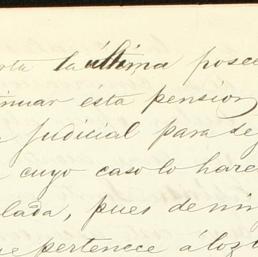 rta la última posee
tinuar ésta pension
Judicial para se
cuyo caso lo hare
lada, pues de nin
ue pertenece á los